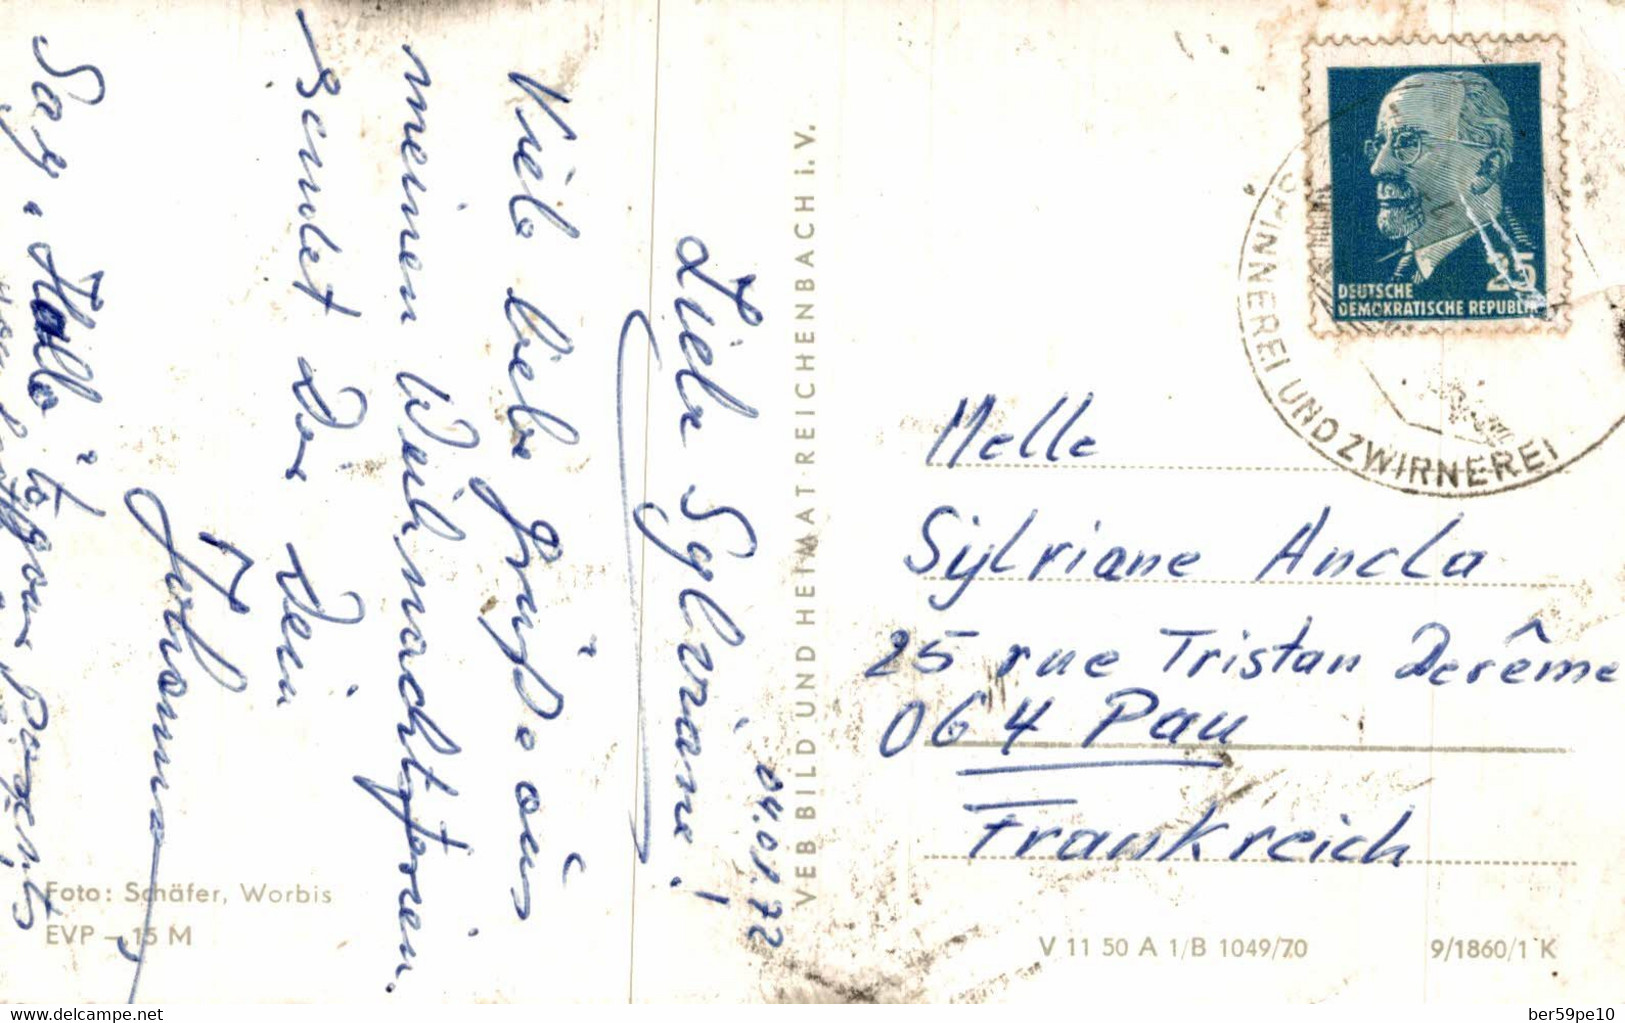 04.01.72
Liebe Sylviane!
Viele liebe Grüße aus
meinen Weihnachtsferien
sendet Dir Dein
Johannes
Sag „Hallo" to your parents
Foto: Schäfer, Worbis
EVP –,15 M
VEB BILD UND HEIMAT REICHENBACH i. V.
DEUTSCHE
DEMOKRATISCHE REPUBLIK
25
SPINNEREI UND ZWIRNEREI
Melle
Sylviane Ancla
25 rue Tristan Derême
064 Pau
Frankreich
V 11 50 A 1/B 1049/70
9/1860/1 K
www.delcampe.net
ber59pe10